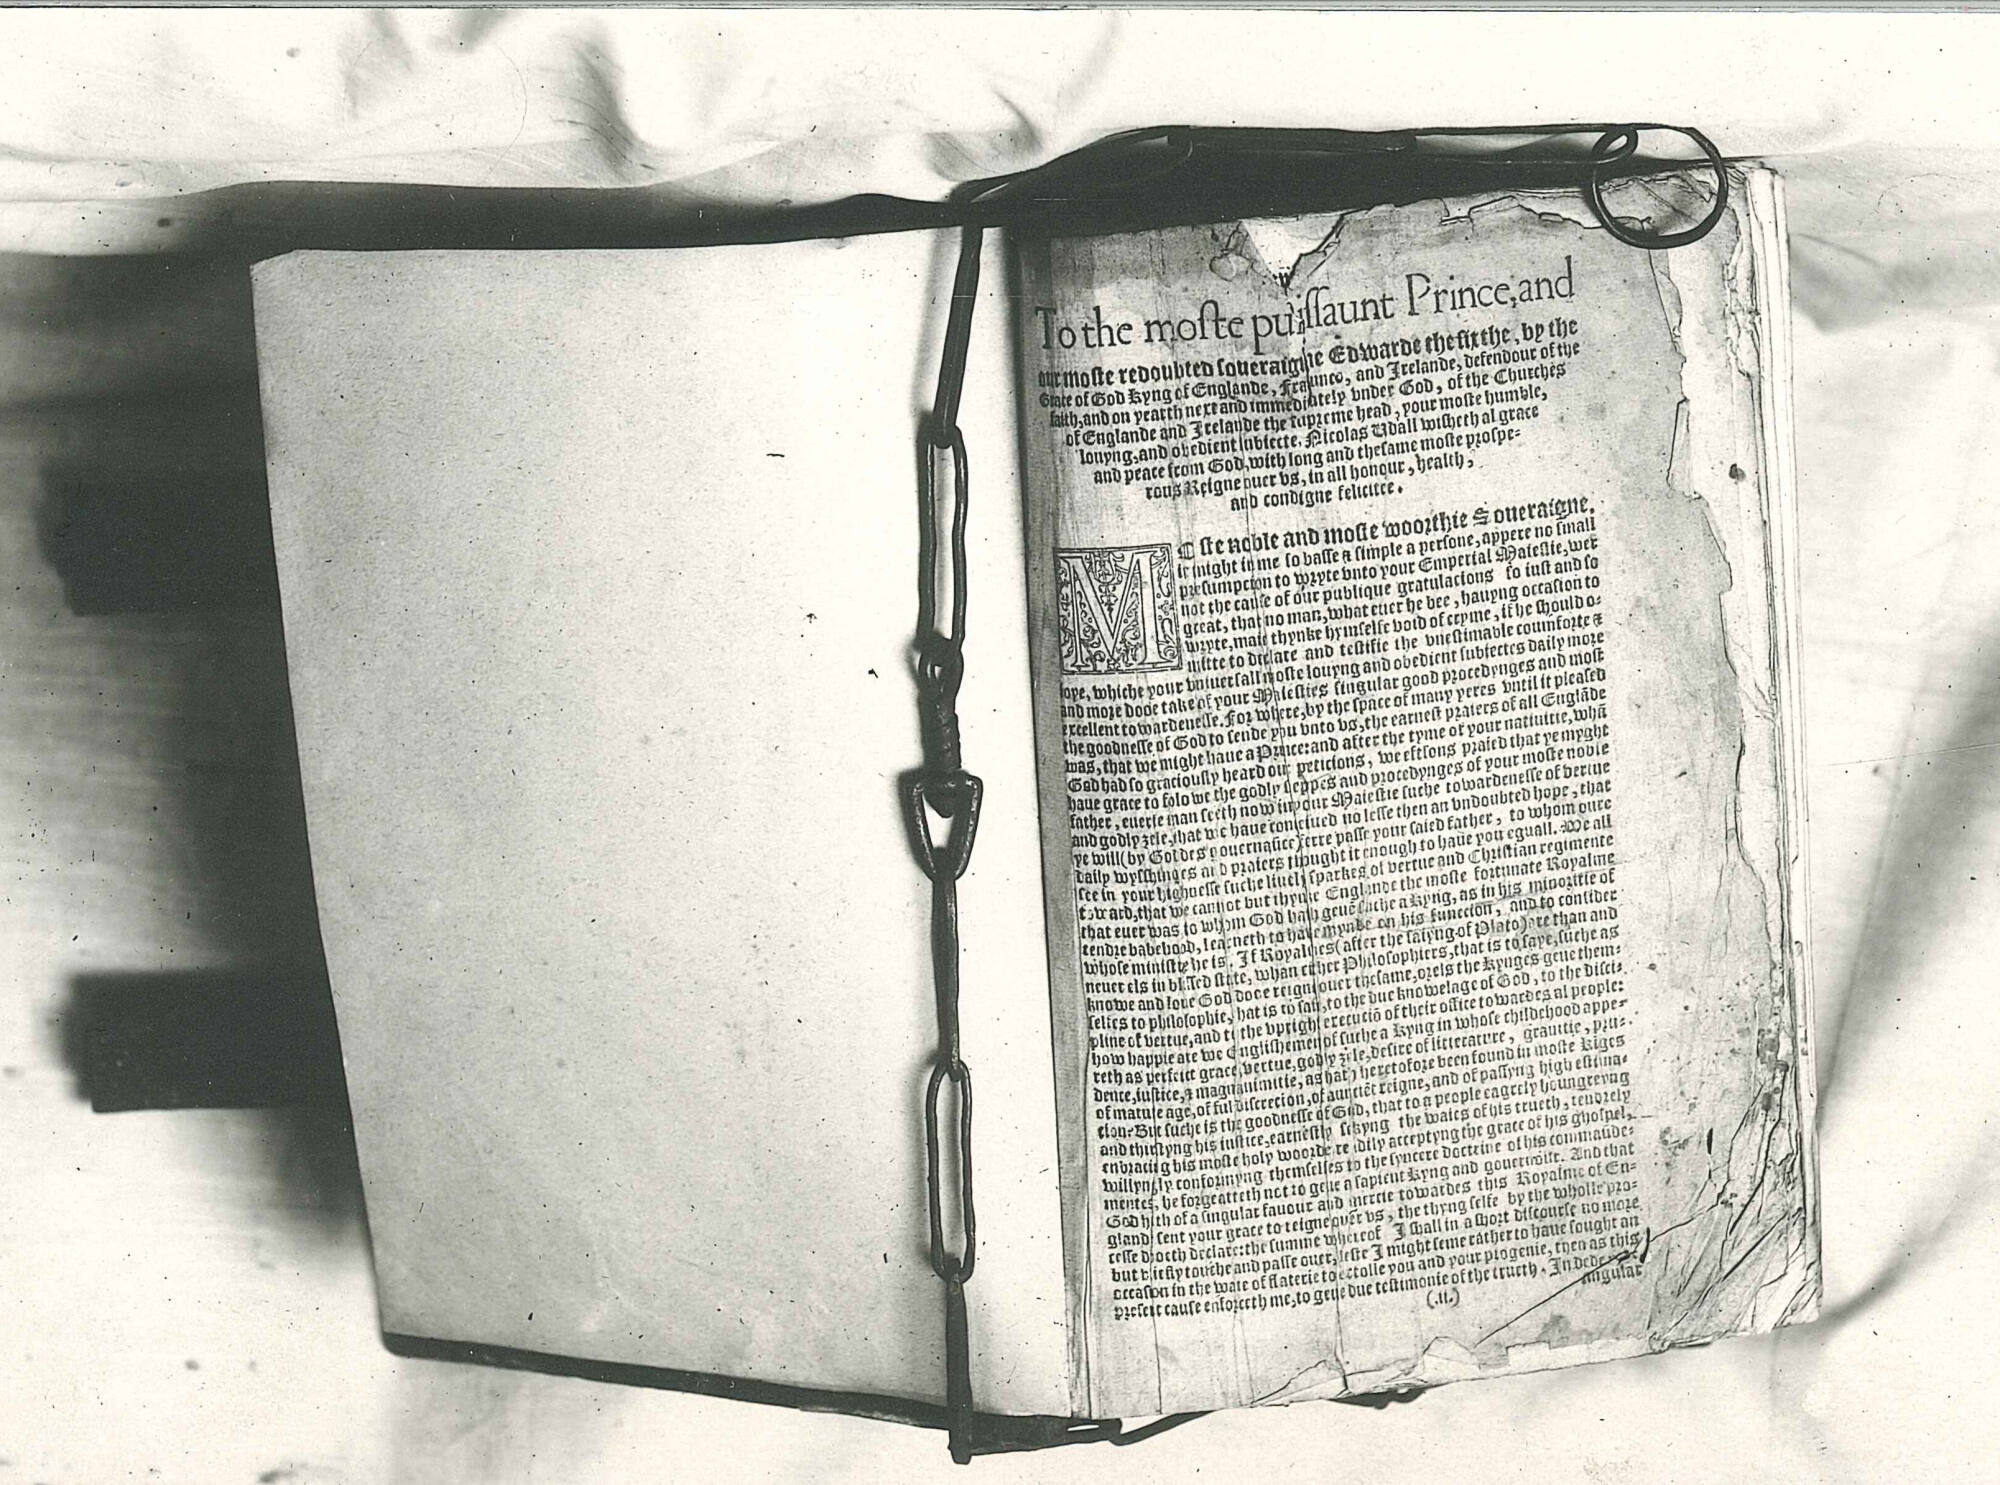 To the moſte puiſſaunt Prince, and
our moſte redoubted ſoueraigne Edwarde the ſixthe, by the
Grace of God kyng of Englande, Fraunce, and Irelande, defendour of the
faith, and on yearth next and immediately vnder God, of the Churches
of Englande and Irelande the ſupreme head, your moſte humble,
louyng, and obedient ſubiecte, Nicolas Udall wiſheth al grace
and peace from God, with long and theſame moſte proſpe-
rous Reigne ouer vs, in all honour, health,
and condigne felicitee.
M Oſte noble and moſte woorthie Soueraigne,
it might in me ſo baſſe & ſimple a perſone, appere no ſmall
preſumpcion to wryte vnto your Emperial Maieſtie, wer
not the cauſe of our publique gratulacions ſo iuſt and ſo
great, that no man, what euer he bee, hauyng occaſion to
wryte, maie thynke hymſelfe void of cryme, if he ſhould o-
mitte to declare and teſtifie the vneſtimable coumforte &
ioye, whiche your vniuerſall moſte louyng and obedient ſubiectes daily more
and more dooe take of your Maieſties ſingular good procedynges and moſt
excellent towardeneſſe. For where, by the ſpace of many yeres vntil it pleaſed
the goodneſſe of God to ſende you vnto vs, the earneſt praiers of all Englãde
was, that we might haue a Prince: and after the tyme of your natiuitie, whã
God had ſo graciouſly heard our peticions, we eftſons praied that ye myght
haue grace to folowe the godly ſteppes and procedynges of your moſte noble
father, euerie man ſeeth now in your Maieſtie ſuche towardeneſſe of vertue
and godly zele, that we haue conceiued no leſſe then an vndoubted hope, that
ye will (by Goddes gouernaũce) ferre paſſe your ſaied father, to whom oure
daily wyſſhinges and praiers thought it enough to haue you eguall. We all
ſee in your highneſſe ſuche liuely ſparkes of vertue and Chriſtian regimente
toward, that we cannot but thynke Englande the moſte fortunate Royalme
that euer was, to whom God hath geuẽ ſuche a kyng, as in his minoritie of
tendre babehood, learneth to haue mynde on his funccion, and to conſider
whoſe miniſtre he is. If Royalmes (after the ſaiyng of Plato) are than and
neuer els in bleſſed ſtate, whan either Philoſophiers, that is to ſaye, ſuche as
knowe and loue God dooe reigne ouer theſame, orels the kynges geue them-
ſelfes to philoſophie, that is to ſay, to the due knowelage of God, to the diſci-
pline of vertue, and to the vpright execuciõ of their office towardes al people:
how happie are we Engliſhemen of ſuche a kyng in whoſe childehood appe-
reth as perfeict grace, vertue, godly zele, deſire of litterature, grauitie, pru-
dence, iuſtice, & magnanimitie, as hath heretofore been found in moſte kĩges
of mature age, of ful diſcrecion, of auncient reigne, and of paſſyng high eſtima-
cion? But ſuche is the goodneſſe of God, that to a people eagrely houngreyng
and thirſtyng his iuſtice, earneſtly ſekyng the waies of his trueth, tendrely
enbracing his moſte holy woorde, readily acceptyng the grace of his ghoſpel,
willyngly conformyng themſelfes to the ſyncere doctrine of his commaũde-
mentes, he forgeatteth not to geue a ſapient kyng and gouernour. And that
God hath of a ſingular fauour and mercie towardes this Royalme of En-
gland ſent your grace to reigne ouer vs, the thyng ſelfe by the wholle pro-
ceſſe dooeth declare: the ſumme whereof I ſhall in a ſhort diſcourſe no more
but briefly touche and paſſe ouer, leſte I might ſeme rather to haue ſought an
occaſion in the waie of flaterie to extolle you and your progenie, then as this
preſent cauſe enforceth me, to geue due teſtimonie of the trueth. In dede
(.ii.) ſingular